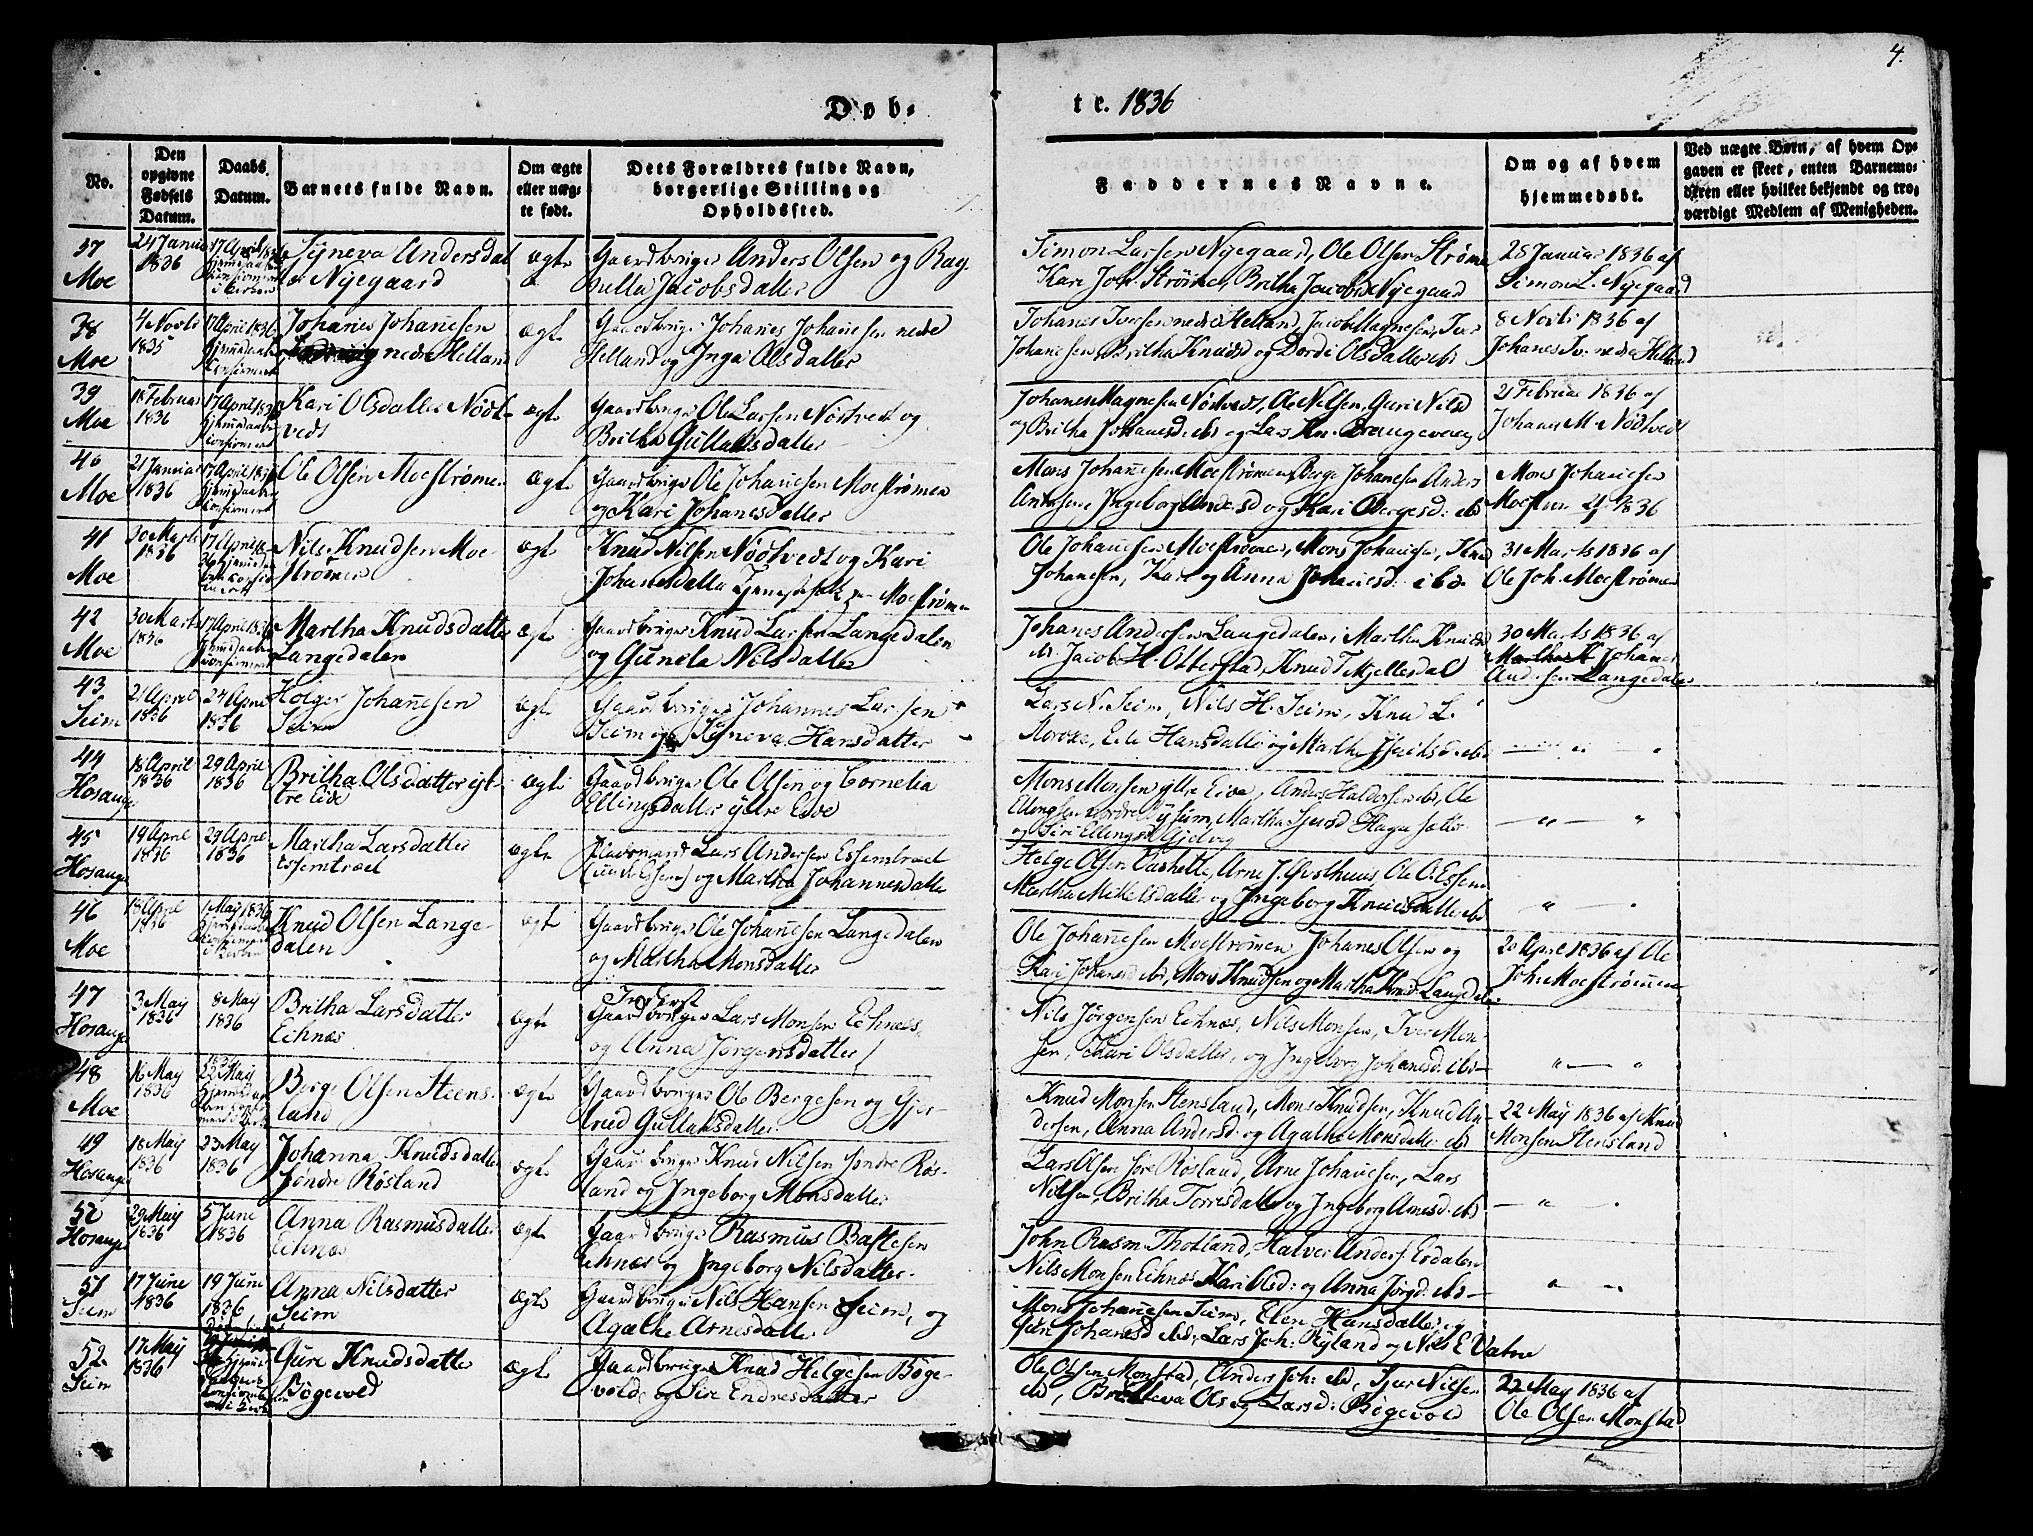 4.
Døb-
te. 1836
No.
Den opgivne Fødsels Datum.
Daabs Datum.
Barnets fulde Navn.
Om ægte eller uæg-
te født.
Dets Forældres fulde Navn,
borgerlige Stilling og
Opholdssted.
Faddernes Navne.
Om og af hvem
hjemmedøbt.
Ved uægte Børn, af hvem Op-
gaven er skeet, enten Barnemo-
deren eller hvilket bekjendt og tro-
værdigt Medlem af Menigheden.
37 Moe
24 Januar 1836
17 April 1836
Syneva Andersdat
ter Nyegaard
ægte
Gaardbruger Anders Olsen og Rag
nilla Jacobsdatter
Simon Larsen Nyegaard, Ole Olsen Strøme
Kari Joh. Strømen, Britha Jacobsd Nyegaard
28 Januar 1836 af
Simon L. Nyegaard
38 Moe
4 Novbr 1835
17 April 1836
Johanes Johanesen
nedre Helland
ægte
Gaardbruger Johanes Johanesen nedre
Helland og Inga Olsdatter
Johanes Iversen nedre Helland, Jacob Magnesen, Iver
Johanesen, Britha Knudsd og Dordi Olsdatter ibd
8 Novbr 1836 af
Johanes Iv. nedre Helland
39 Moe
18 Februar 1836
17 April 1836
Kari Olsdatter Nødt-
vedt
ægte
Gaardbruger Ole Larsen Nøstvedt og
Britha Gullaksdatter
Johanes Magnesen Nøstvedt, Ole Nilsen, Guri Nilsd
og Britha Johanesd: ibd og Lars Kn.
21 Februar 1836 af
Johanes M. Nødtvedt
40 Moe
21 Januar 1836
17 April 1836
Ole Olsen Moestrømen
ægte
Gaardbruger Ole Johanesen Moestrømen
og Kari Johanesdatter
Mons Johanesen Moestrømen, Berge Johanesen Anders
Ingeborg Andersd og Kari Bergesd: ibd
Mons Johanesen
41 Moe
30 Marts 1836
17 April 18
Nils Knudsen Moe-
strømen
ægte
Knud Nilsen Nødtvedt og Kari
Johanesdatter Tjenestefolk paa Moestrømen
Ole Johanesen Moestrømen, Mons Johanesen, Knud
Johanesen, Kari og Anna Johanesd: ibd.
31 Marts 1836 af
Ole Joh. Moestrømen
42 Moe
30 Marts 1836
17 April 1836
Martha Knudsdatter
Langedalen
ægte
Gaardbruger Knud Larsen Langedalen
og Gunela Nilsdatter
Johanes Andersen Langedalen, Martha Knudsd
ibd Jacob H. Otterstad, Knud T Mjellesdal
30 Marts 1836 af
Martha K Johanes
Andersen Langedalen
43 Seim
21 April 1836
24 April 1836
Holger Johanesen
Seim
ægte
Gaardbruger Johannes Larsen
Seim og Syneva Hansdatter
Lars N. Seim, Nils H. Seim, Knud L.
44 Hosanger
18 April 1836
29 April 1836
Britha Olsdatter yt-
tre Eide
ægte
Gaardbruger Ole Olsen og Cornelia
Ellingsdatter yttre Eide
Mons Monsen yttre Eide, Anders Haldorsen ibd, Ole
45 Hosanger
19 April 1836
29 April 1836
Martha Larsdatter
Essemtræet
ægte
Pladsmand Lars Andersen Essemtræet
og Martha Johannesdatter
Helge Olsen, Arne J. Østhuus Ole O. Essem
Martha Mikkelsdatter og Ingeborg Knudsdatter ibd
46 Moe
18 April 1836
1 May 1836
Knud Olsen Lange-
dalen
ægte
Gaardbruger Ole Johanesen Langedalen
og Martha Monsdatter
Ole Johanesen Moestrømen, Johanes Olsen og
Kari Johanesd ibd, Mons Knudsen og Martha Knud: Langedalen
20 April 1836 af Ole
Joh: Moestrømmen
47 Hosanger
3 May 1836
8 May 1836
Britha Larsdatter
Eihnæs
ægte
Gaardbruger Lars Monsen Eihnæs,
og Anna Jørgensdatter
Nils Jörgensen Eihnæs, Nils Monsen, Iver Mon-
sen, Kari Olsdatter, og Ingeborg Johanesd. ibd
48 Moe
16 May 1836
22 May
Berge Olsen Steens-
land
ægte
Gaardbruger Ole Bergesen og Gjer-
trud Gullaksdatter
Knud Monsen Stensland, Mons Knudsen, Knud An-
dersen, Anna Andersd: og Agathe Monsdatter ibd
22 May 1836 af Knud
Monsen Steensland
49 Hosanger
18 May 1836
23 May 1836
Johanna Knudsdatter
søndre Røsland
ægte
Gaardbruger Knud Nilsen søndre Røs-
land og Ingeborg Monsdatter
Lars Olsen søre Røsland, Arne Johanesen, Lars
Nilsen, Britha Torrisdatter og Ingeborg Arnesd. ibd
52 Hosanger
29 May 1836
5 June 1836
Anna Rasmusdatter
Eihnæs
ægte
Gaardbruger Rasmus Bastesen
Eihnæs og Ingeborg Nilsdatter.
John Rasm Thotland, Halver Anders. Esdalen
Nils Monsen Eihnæs, Kari Olsd: og Anna Jørgd: ibd
51 Seim
17 June 1836
19 June 1836
Anna Nilsdatter
Seim
ægte
Gaardbruger Nils Hansen Seim, og
Agathe Arnesdatter
Mons Johanesen Seim, Elen Hansdatter og
Guri Johanesd ibd, Lars Joh: Ryland og Nils E Vatne
52 Seim
17 May 1836
Gure Knudsdatter
Bøgevold
ægte
Gaardbruger Knud Helgesen Bøge-
vold, og Sire Endresdatter
Ole Olsen Monstad, Anders Joh: ibd, Sjur Nilsen
ibd, Britheva Ols og Larsd: Bøgevold
22 May 1836 af
Ole Olsen Monstad